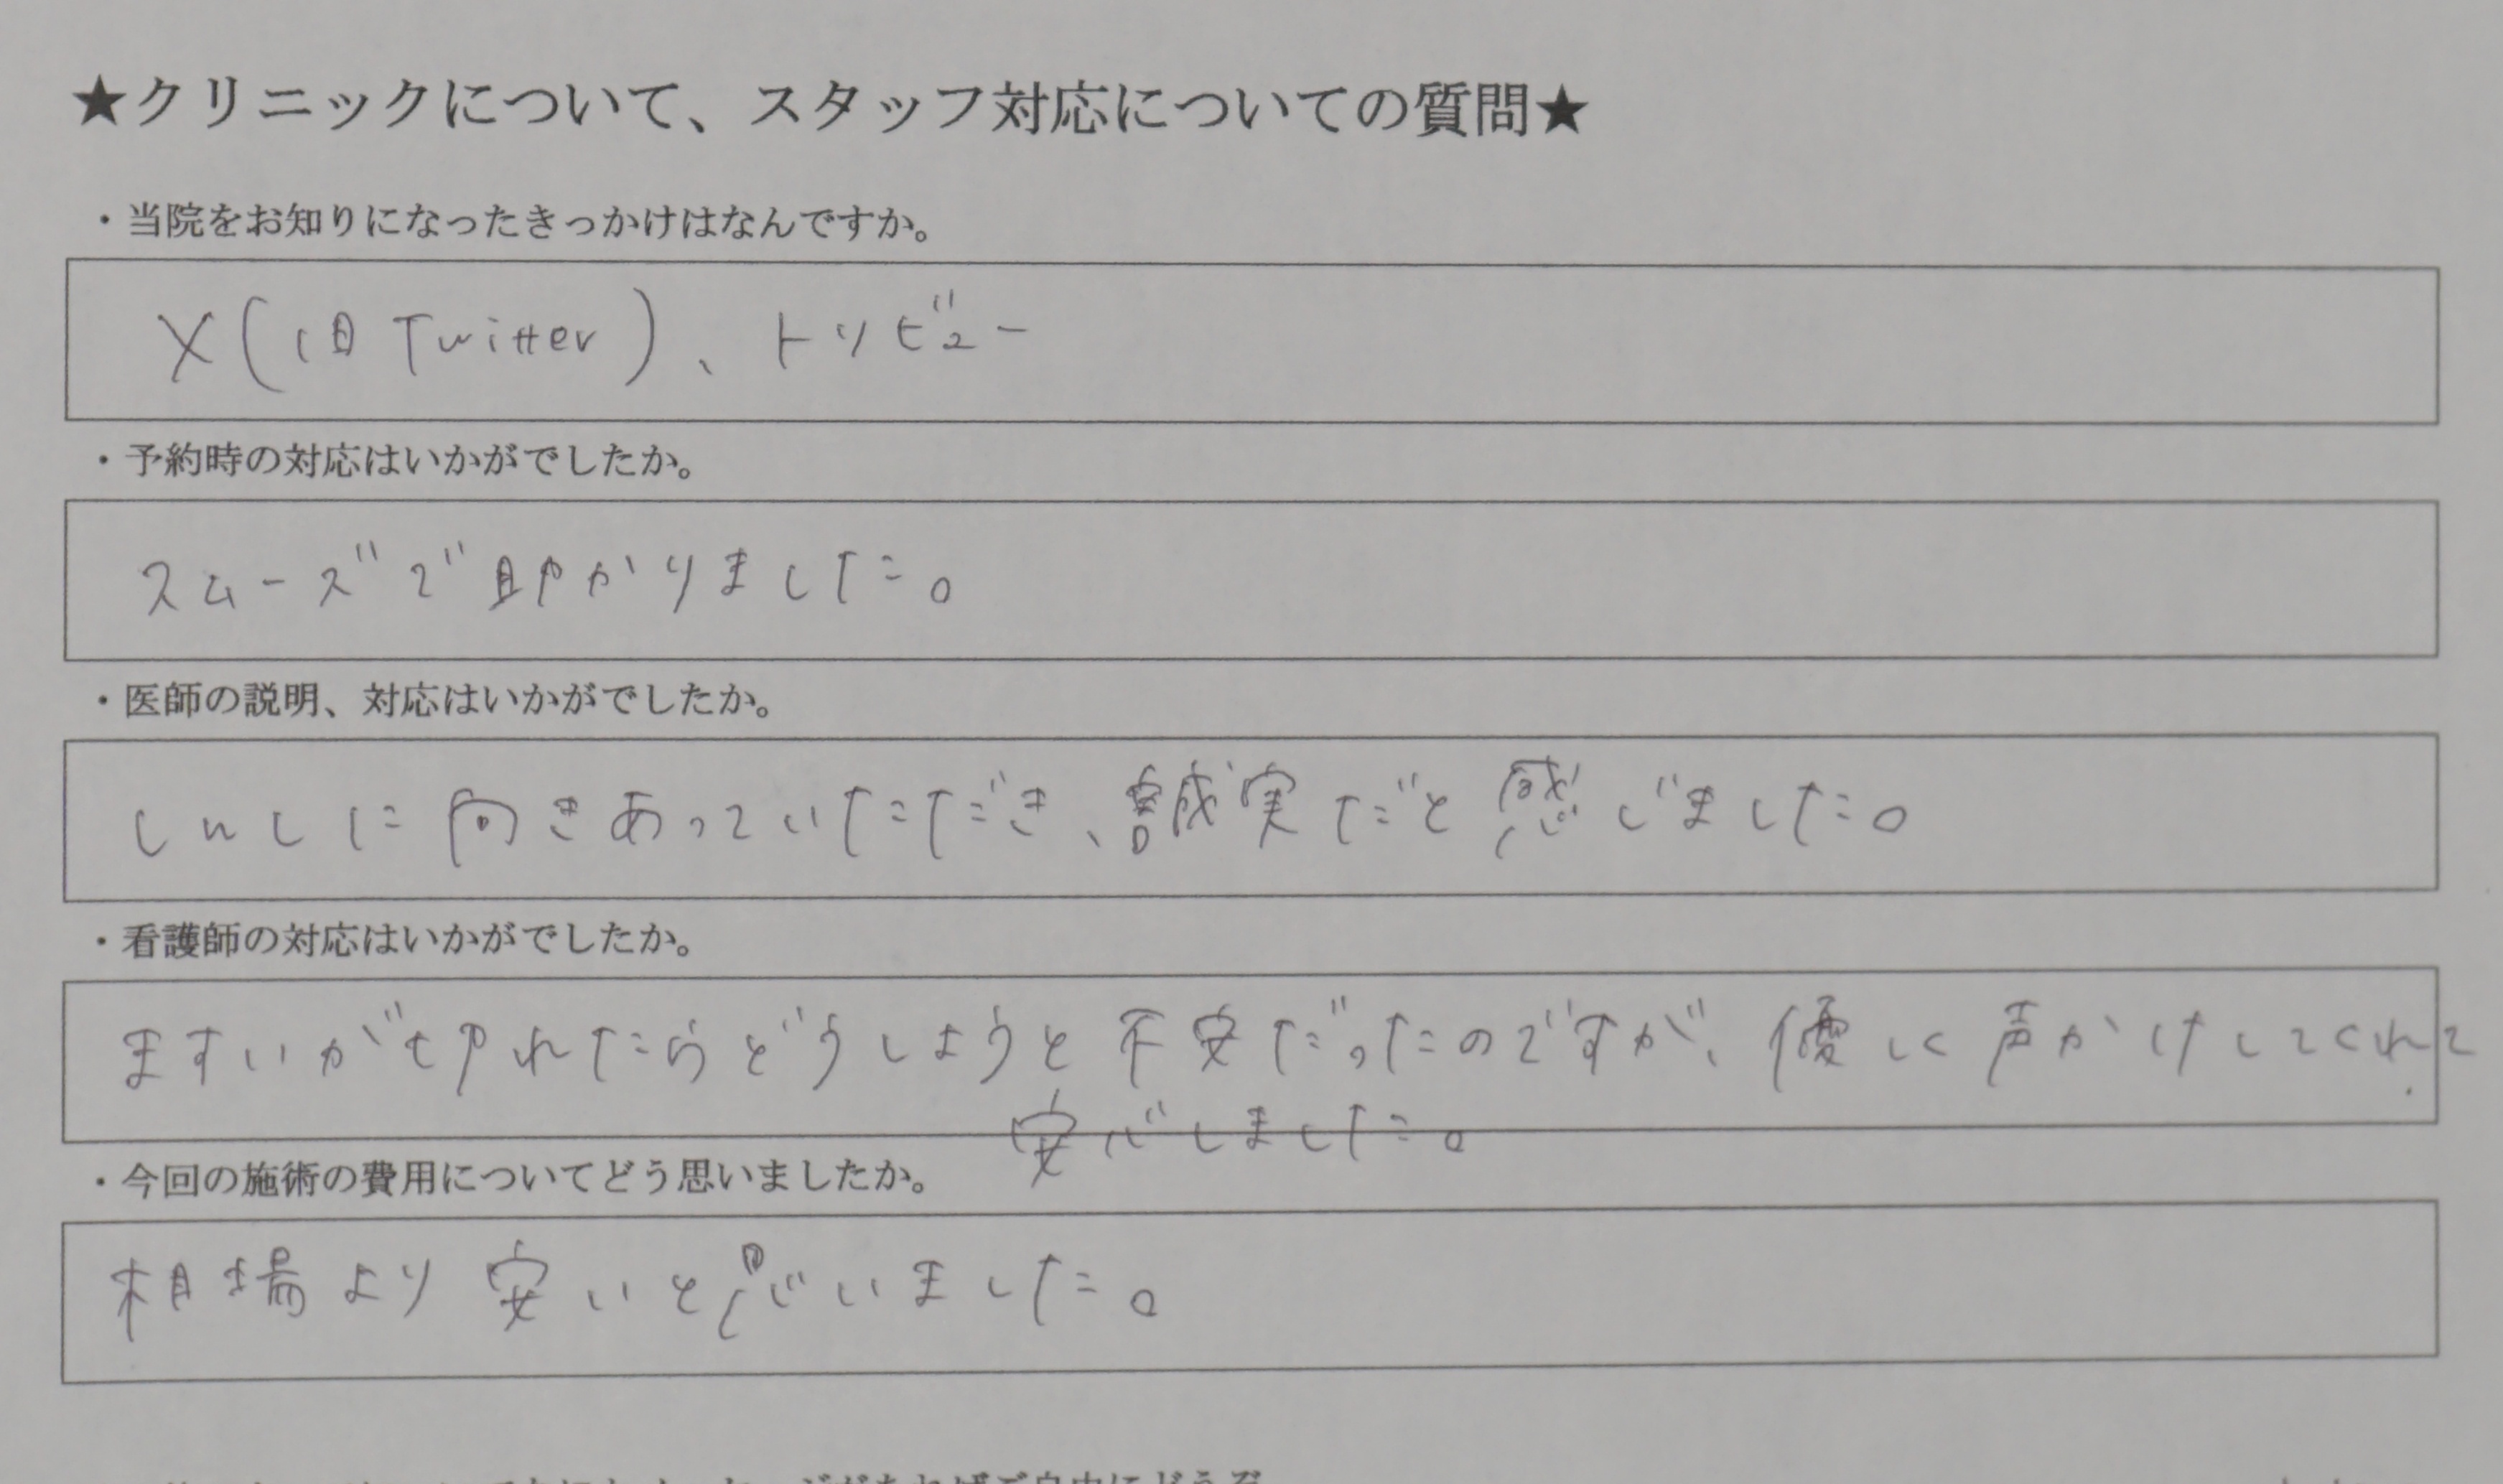 ★クリニックについて、スタッフ対応についての質問★
・当院をお知りになったきっかけはなんですか。
X(旧Twitter)、トリビュー
・予約時の対応はいかがでしたか。
スムーズで助かりました。
・医師の説明、対応はいかがでしたか。
しんしに向きあっていただき、誠実だと感じました。
・看護師の対応はいかがでしたか。
ますいがせやれたらどうしようと不安だったのですが、優しく声かけしてくれて
安心しました。
・今回の施術の費用についてどう思いましたか。
相場より安いと思いました。
があればご自由にどうぞ